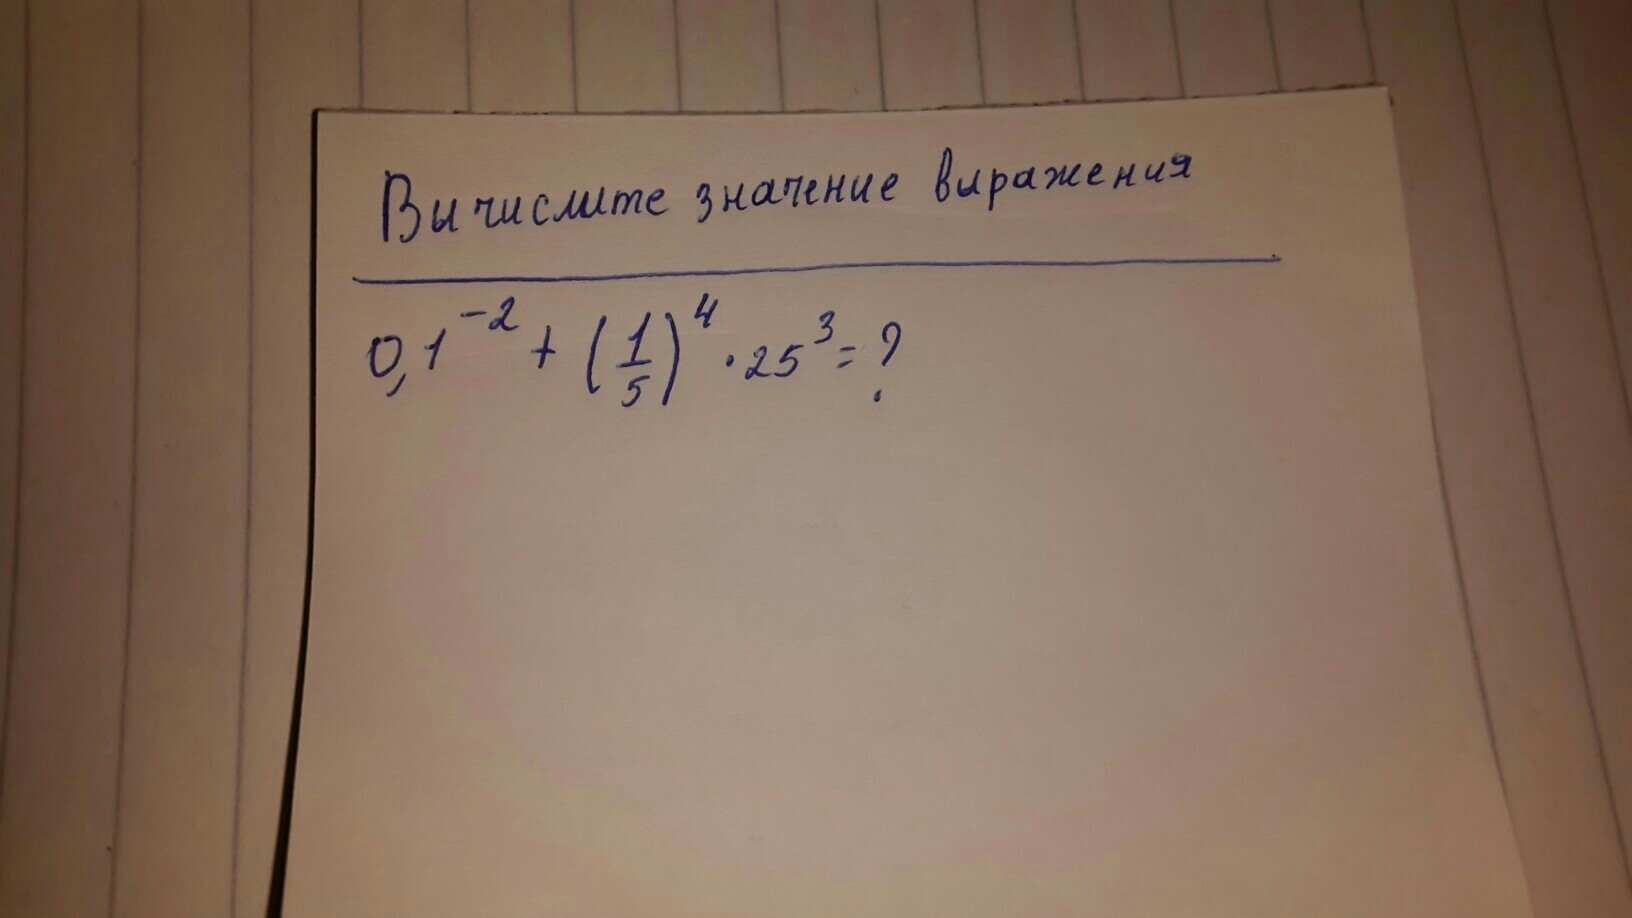 Вычислите значение выражения
0,1^-2 + (1/5)^4 · 25^3 = ?